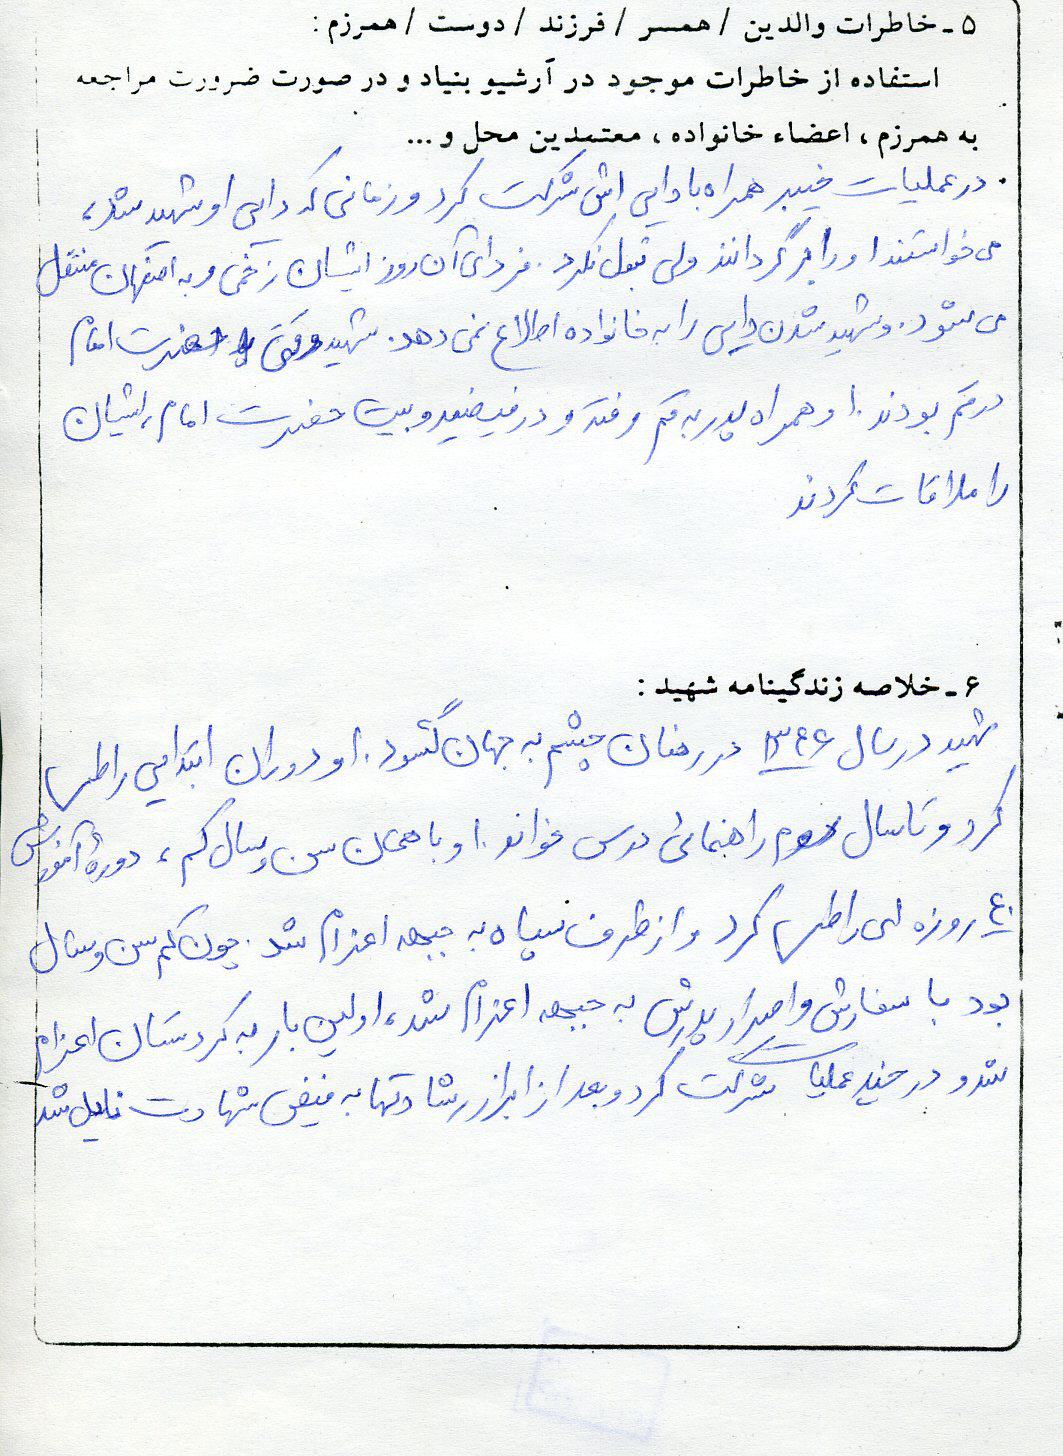 ۵ - خاطرات والدین / همسر / فرزند / دوست / همرزم :
استفاده از خاطرات موجود در آرشیو بنیاد و در صورت ضرورت مراجعه
به همرزم ، اعضاء خانواده ، معتمدین محل و ...
در عملیات خیبر همراه با دایی اش شرکت کرد و زمانی که دایی او شهید شد،
می خواستند او را برگردانند ولی قبول نکرد. فردای آن روز ایشان زخمی و به اصفهان منتقل
می شود. و شهید شدن دایی را به خانواده اطلاع نمی دهد. شهید وقتی حضرت امام
در قم بودند. او همراه پدر به قم رفته و در فیضیه و بیت حضرت امام، ایشان
را ملاقات کردند
۶ - خلاصه زندگینامه شهید :
شهید در سال در رهنان چشم به جهان گشود. او دوران ابتدایی را طی
کرد و تا سال راهنمائی درس خواند. او با همان سن و سال کم، دورهٔ آموزش
۴۰ روزه ای را طی کرد و از طرف سپاه به جبهه اعزام شد. چون کم سن و سال
بود با سفارش و اصرار پدرش به جبهه اعزام شد، اولین بار به کردستان اعزام
شد و در چند عملیات شرکت کرد و بعد از ابراز رشادتها به فیض شهادت نایل شد